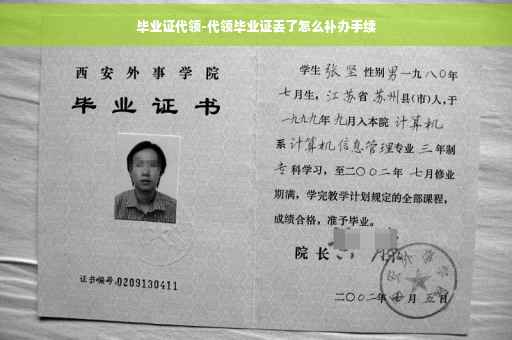 毕业证代领-代领毕业证丢了怎么补办手续
西安外事学院
毕业证书
证书编号:0209130411
学生 张坚 性别 男 一九八〇年
七月生, 江苏省 苏州县(市)人,于
一九九九年 九月入本院 计算机
系 计算机信息管理专业 三 年制
专 科学习,至二〇〇二年 七月修业
期满,学完教学计划规定的全部课程,
成绩合格,准予毕业。
院长
二〇〇二年 月五日